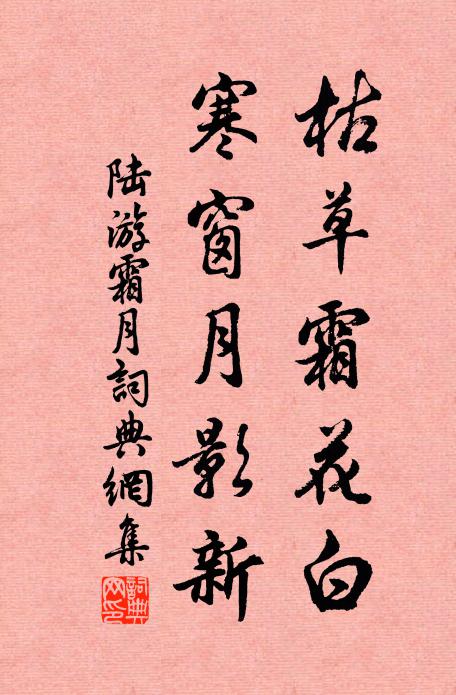 枯草霜花白
寒窗月影新
陆游霜月詞典網集
詞典網印